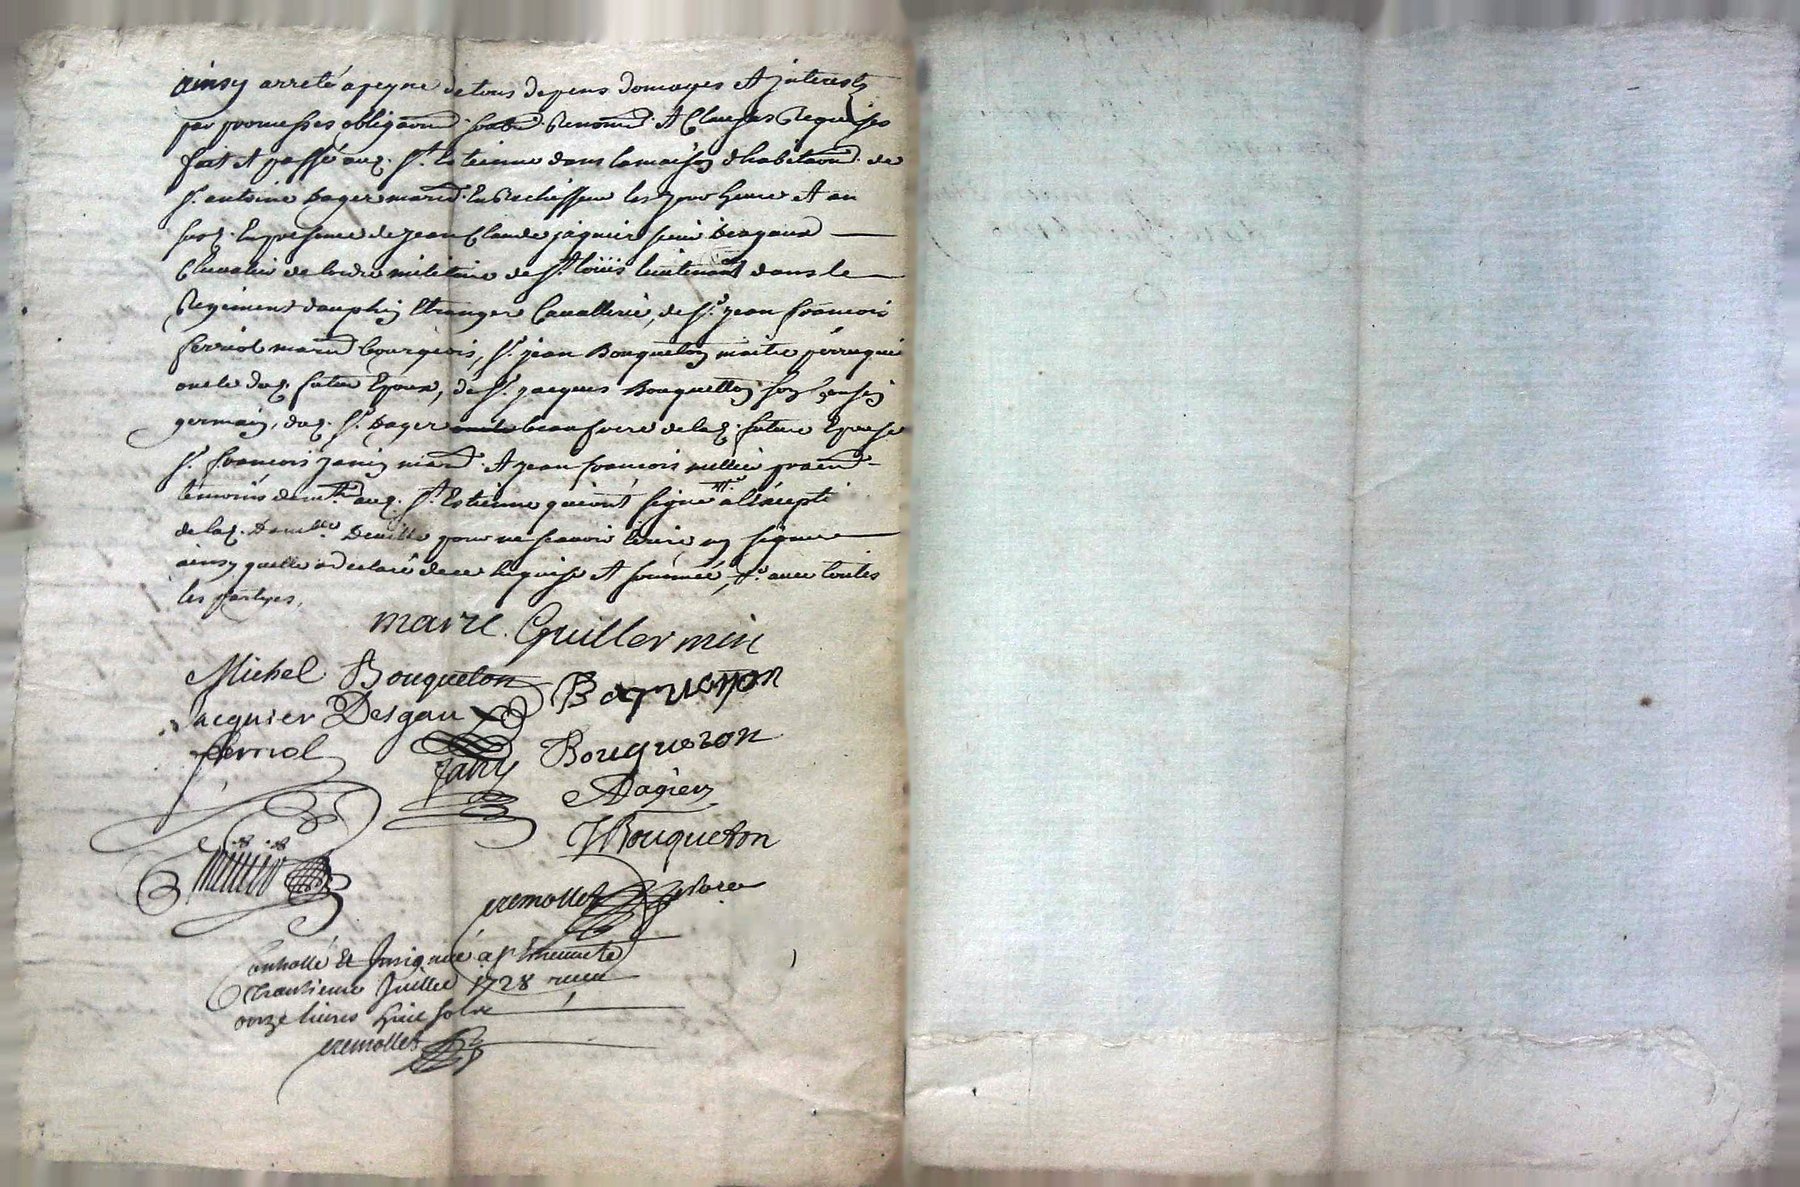 ainsy arreté a peyne de tous depens domages et interest
par promesses, obligaõns. Renonõns. et Clauses Requises
fait et passé aud. St. Estienne dans la maison d'habitaõn. de
Sr. antoine Dagier mard. les jour heure et an
susd. En presence de jean Claude jaquier sieur Desgaux
Chevalier de lordre militaire de St. loüis lieutenant dans le
Regiment dauphin Etranger Cavallerie, de Sr. jean francois
ferriol mard. bourgeois, Sr. jean Bouqueton maitre perruquier
oncle dud. futur Epoux, de Sr. jacques Bouqueton son Cousin
germain, dud. Sr. Dagier beaufrere de lad. future Epouse
Sr. francois janin mard. et jean francois millier pratid.
témoins demts. aud. St. Estienne qui ont signé a lexcepté
de lad. Demlle. Deville pour ne scavoir écrire ny signer
ainsy quelle a declaré de ce Requise et sommée, avec toutes
les partyes,
marc. Guillermin
Michel Bouqueton Boquetton
Jacquier Desgaux
ferriol Janin Bouqueton
Dagier
J Bouqueton
millier
cremollet notaire
Controllé et Insignué a St. Etienne le
trantieme Juillet 1728 receu
onze livres huit sols
cremollet